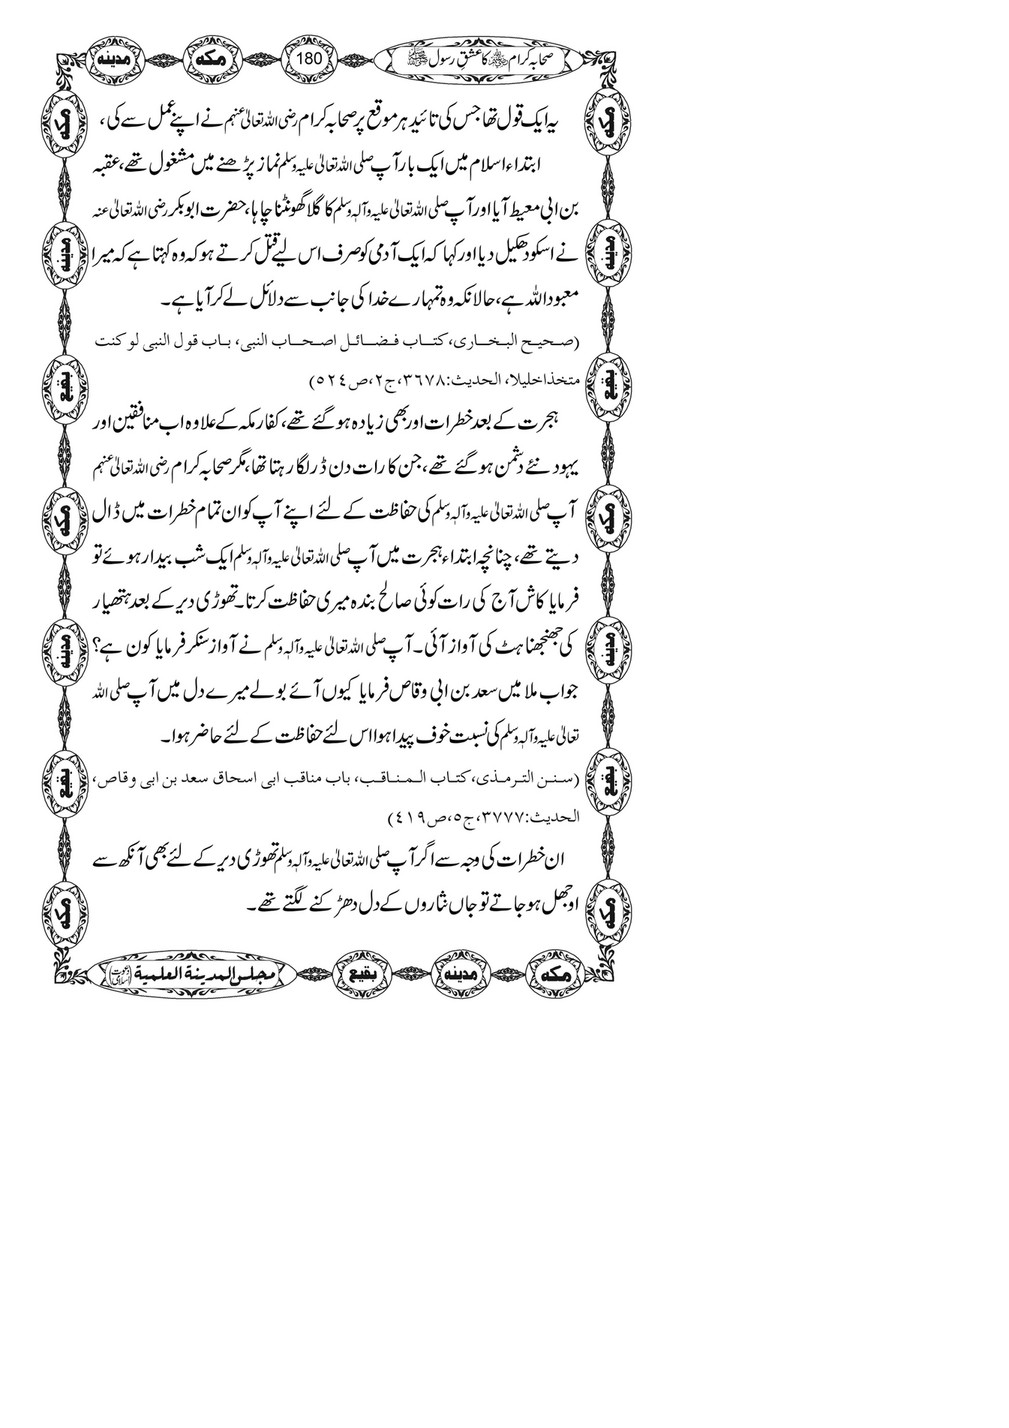 صحابہ کرام کا عشق رسول ﷺ
180
مکه
مدینه
یہ ایک قول تھا جس کی تائید ہر موقع پر صحابہ کرام رضی اللہ تعالیٰ عنہم نے اپنے عمل سے کی،
ابتداء اسلام میں ایک بار آپ صلی اللہ تعالیٰ علیہ وسلم نماز پڑھنے میں مشغول تھے، عقبہ
بن ابی معیط آیا اور آپ صلی اللہ تعالیٰ علیہ وآلہٖ وسلم کا گلا گھونٹنا چاہا، حضرت ابوبکر رضی اللہ تعالیٰ عنہ
نے اسکو دھکیل دیا اور کہا کہ ایک آدمی کو صرف اس لیے قتل کرتے ہو کہ وہ کہتا ہے کہ میرا
معبود اللہ ہے، حالانکہ وہ تمہارے خدا کی جانب سے دلائل لے کر آیا ہے۔
(صحیح البخاری، کتاب فضائل اصحاب النبی، باب قول النبی لو کنت
متخذا خلیلا، الحدیث:۳۶۷۸، ج۲، ص۵۲٤)
ہجرت کے بعد خطرات اور بھی زیادہ ہو گئے تھے، کفار مکہ کے علاوہ اب منافقین اور
یہود نئے دشمن ہو گئے تھے، جن کا رات دن ڈر لگا رہتا تھا، مگر صحابہ کرام رضی اللہ تعالیٰ عنہم
آپ صلی اللہ تعالیٰ علیہ وآلہٖ وسلم کی حفاظت کے لئے اپنے آپ کو ان تمام خطرات میں ڈال
دیتے تھے، چنانچہ ابتداء ہجرت میں آپ صلی اللہ تعالیٰ علیہ وآلہٖ وسلم ایک شب بیدار ہوئے تو
فرمایا کاش آج کی رات کوئی صالح بندہ میری حفاظت کرتا۔ تھوڑی دیر کے بعد ہتھیار
کی جھنجھناہٹ کی آواز آئی۔ آپ صلی اللہ تعالیٰ علیہ وآلہٖ وسلم نے آواز سنکر فرمایا کون ہے؟
جواب ملا میں سعد بن ابی وقاص فرمایا کیوں آئے بولے میرے دل میں آپ صلی اللہ
تعالیٰ علیہ وآلہٖ وسلم کی نسبت خوف پیدا ہوا اس لئے حفاظت کے لئے حاضر ہوا۔
(سنن الترمذی، کتاب المناقب، باب مناقب ابی اسحاق سعد بن ابی وقاص،
الحدیث:۳۷۷۷، ج٥، ص٤١٩)
ان خطرات کی وجہ سے اگر آپ صلی اللہ تعالیٰ علیہ وآلہٖ وسلم تھوڑی دیر کے لئے بھی آنکھ سے
اوجھل ہو جاتے تو جاں نثاروں کے دل دھڑکنے لگتے تھے۔
مکه
مدینه
بقیع
مکه
مدینه
بقیع
مکه
مکه
مدینه
بقیع
مکه
مدینه
بقیع
مکه
مکه
مدینه
بقیع
مجلس المدینة العلمیة (دعوت اسلامی)